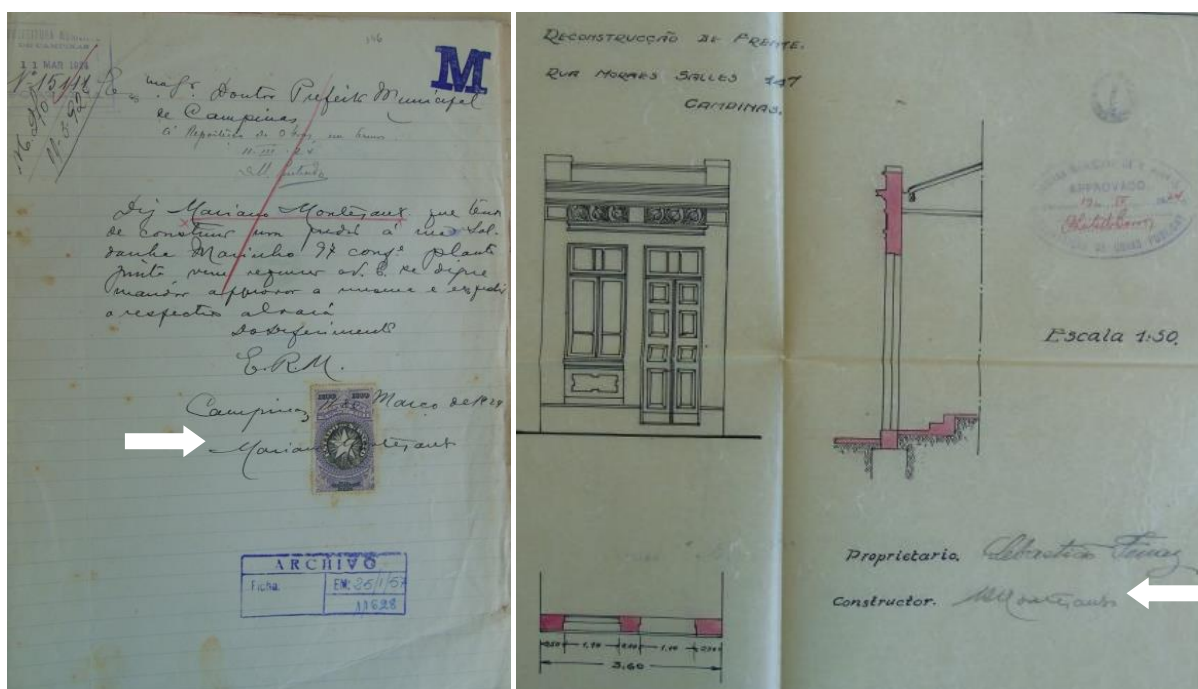 PREFEITURA MUNICIPAL
DE CAMPINAS
11 MAR 1924
Nº 15118
M
Doutor Prefeito Municipal
de Campinas
Á Repartição de Obras,
11-III-24
Diz Mariano Montezaux que tendo
de construir um predio á rua Sal-
danha Marinho 97 conf.e planta
junta vem requerer a V. E. se digne
mandar approvar a mesma e expedir
o respectivo alvará
Deferimento
E. R. M.
Campinas, 11 de Março de 1924
Mariano Montezaux
ARCHIVO
Ficha
EM: 25/1/57
11628
RECONSTRUCÇÃO DE FRENTE.
RUA MORAES SALLES 147
CAMPINAS.
APPROVADO.
Escala 1:50.
Proprietario. Sebastião
Constructor. MMontezaux
1,10
1,10
3.60